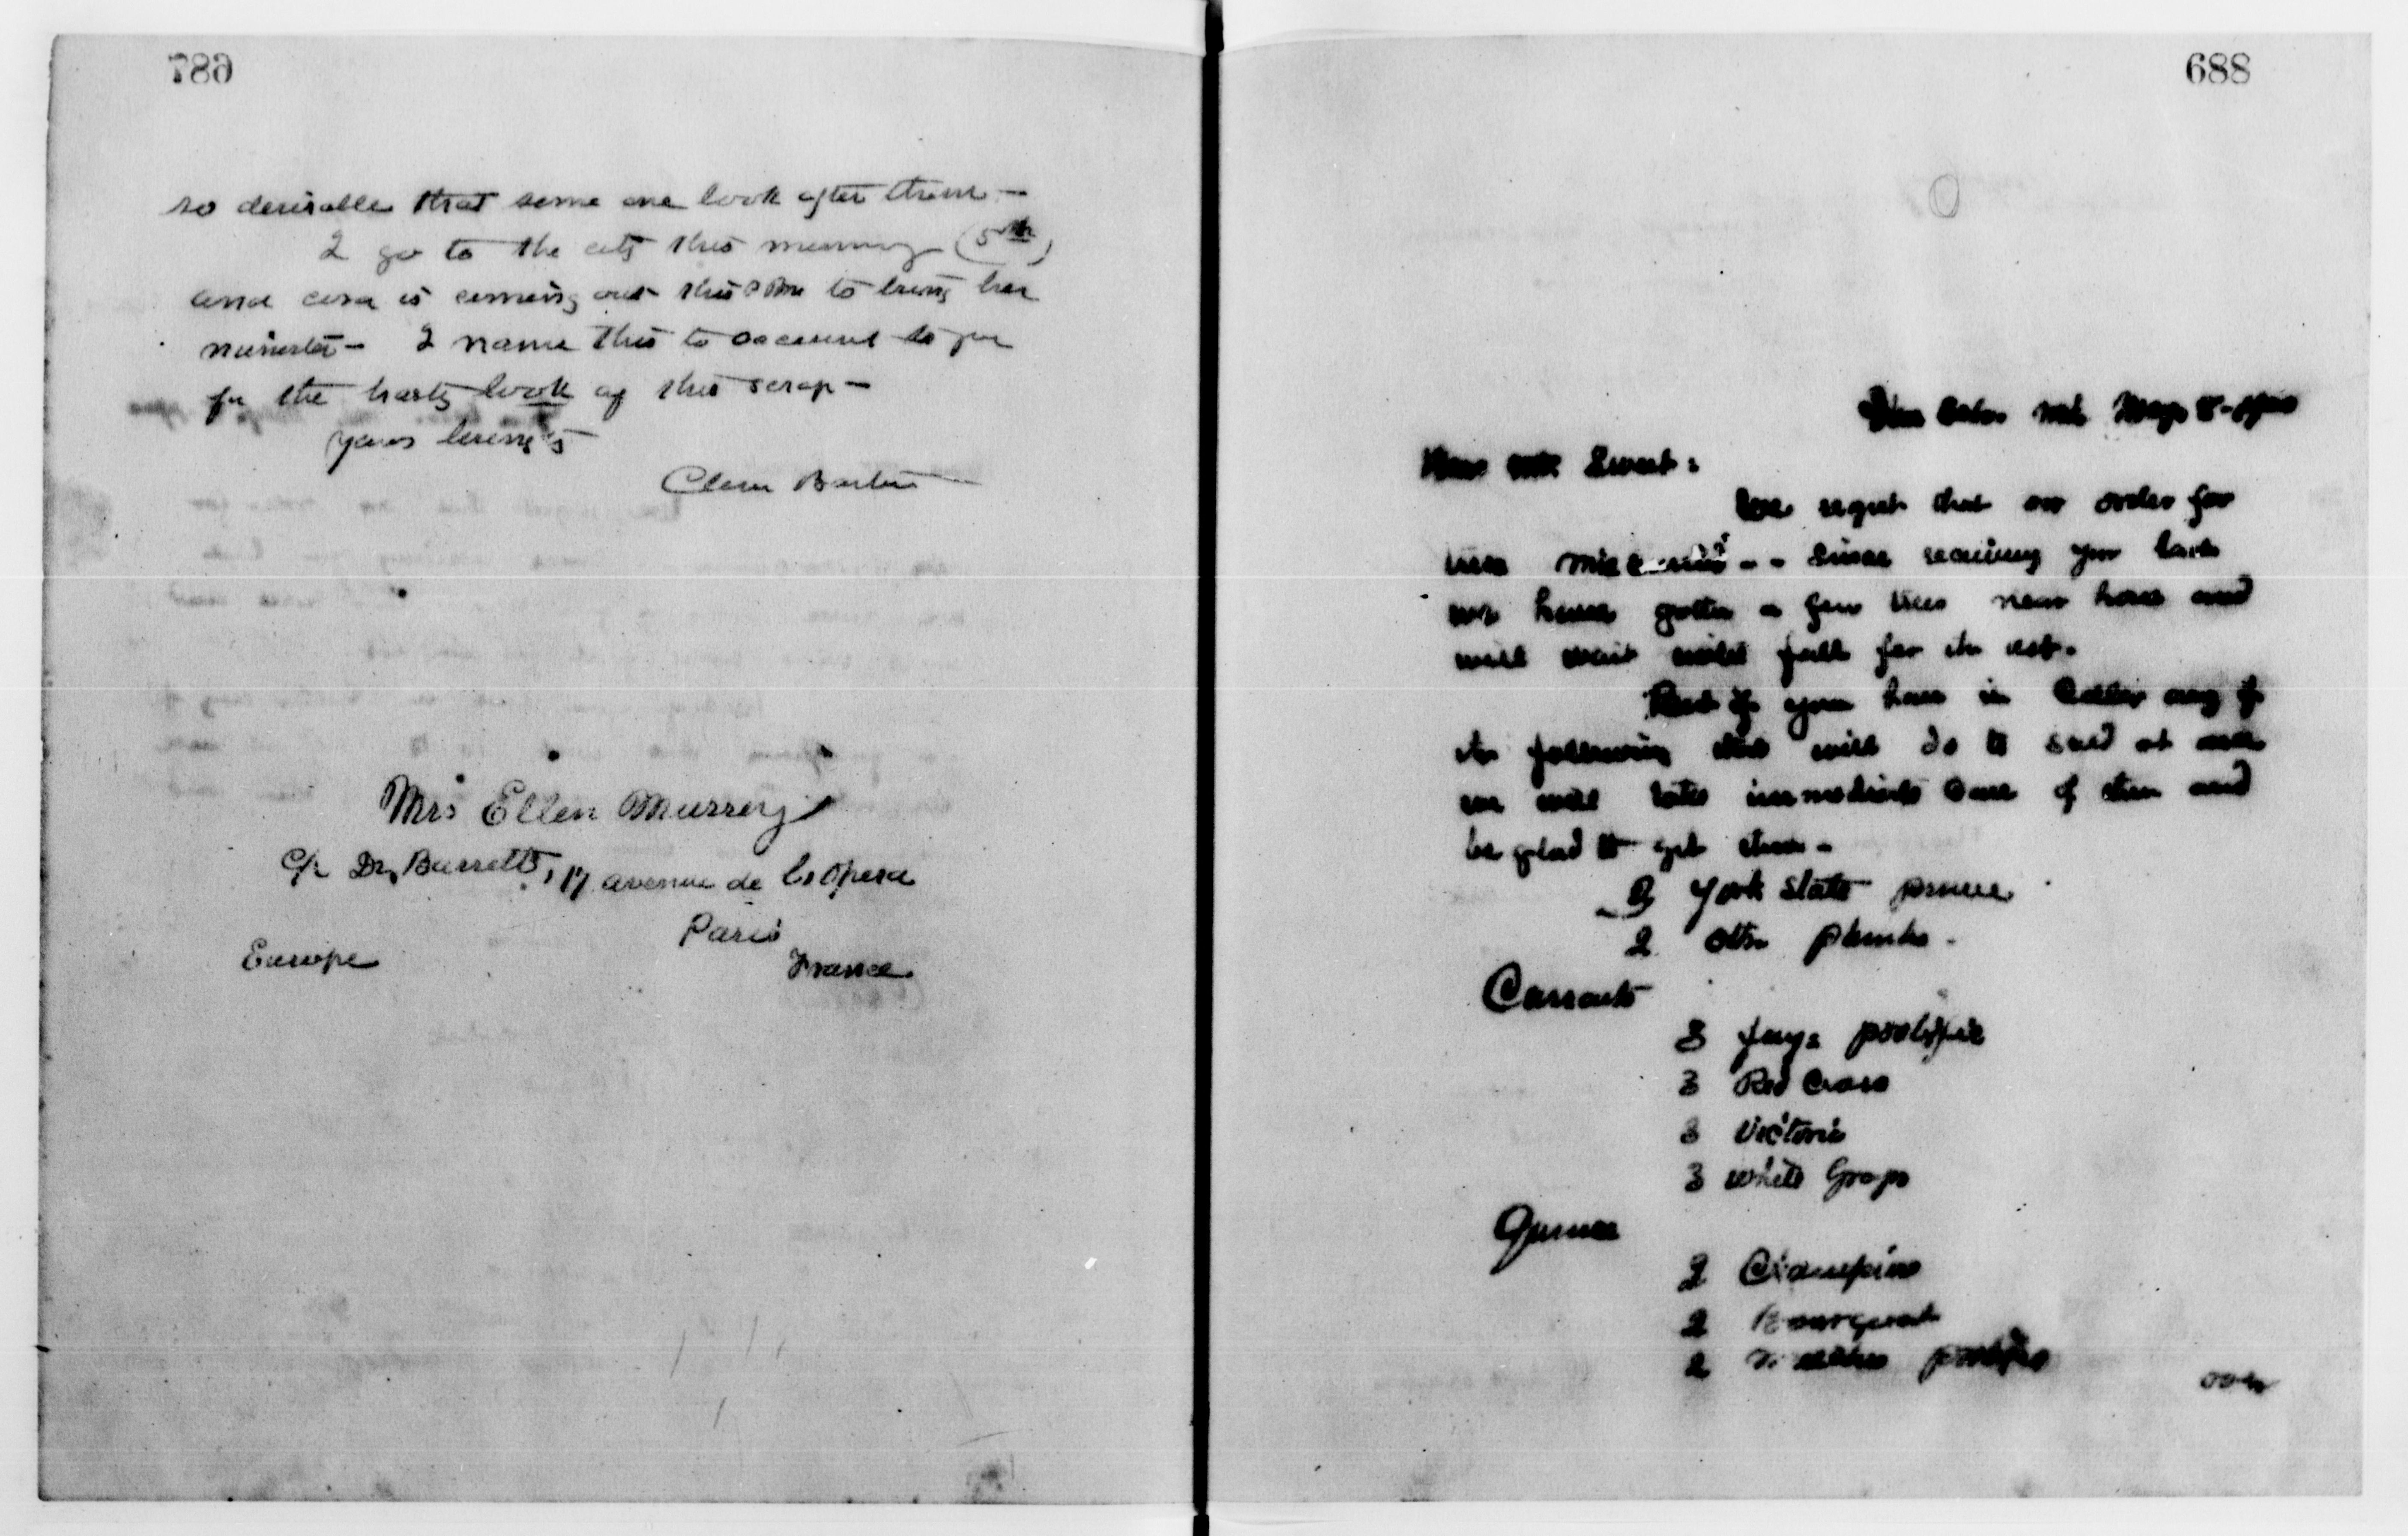 687
so desirable that some one look after them —
I go to the city this morning (5th)
and cora is coming out this P.m. to bring her
minister — I name this to account to you
for the hasty look of this scrap —
yours lovingly
Clara Barton
Mrs Ellen Murrey
c/o Dr. Barrett, 17 avenue de l'opera
Paris
Europe France.
688
Glen Echo Md. May 5-
Dear Mr. Sweet:
We regret that our order for
was Since receiving your last
we have gotten a few trees near here and
will wait until fall for the rest.
But if you have in Cellar any of
the following that will do to send at once
we will take immediate care of them and
be glad to get them.
2 York State prune
2 other plums.
Currants
3 Fays prolific
3 Red Cross
3 Victoria
3 White Grape
Quince
2 Champion
2 Bourgeat
2 prolific
over